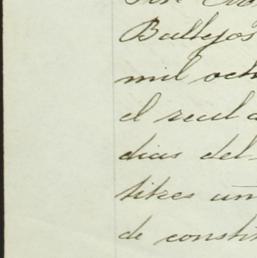 Ballejos
mil och
el real a
dias del
titres un
de constit